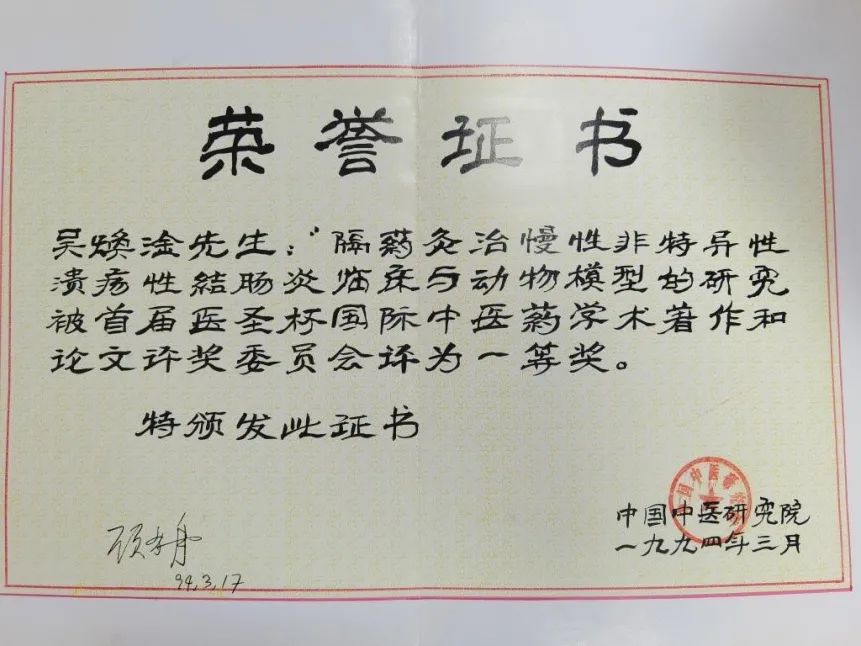 荣誉证书
吴焕淦先生：“隔药灸治慢性非特异性
溃疡性结肠炎临床与动物模型的研究
被首届医圣杯国际中医药学术著作和
论文评奖委员会评为一等奖。
特颁发此证书
中国中医研究院
一九九四年三月
94.3.17